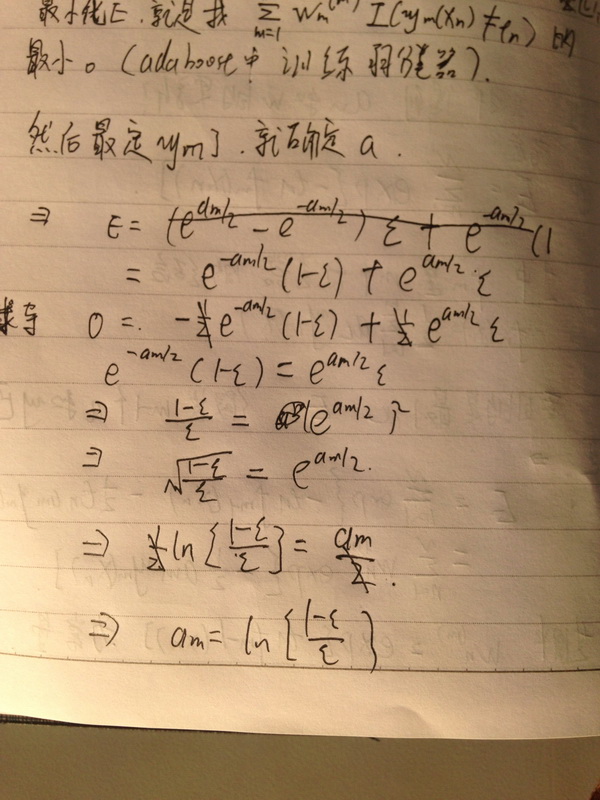 最小化E.就是找 ∑_{m=1} W_m^{(m)} I(y_m(x_n) ≠ t_n) 的
最小。(adaboost中 训练弱健器).
然后最定y_m了.就确定 a.
⇒ E = (e^{am/2} - e^{-am/2}) ε + e^{-am/2} (1
= e^{-am/2} (1-ε) + e^{am/2} · ε
求导 0 = - ½ e^{-am/2} (1-ε) + ½ e^{am/2} ε
e^{-am/2} (1-ε) = e^{am/2} ε
⇒ \frac{1-ε}{ε} = (e^{am/2})^2
⇒ \sqrt{\frac{1-ε}{ε}} = e^{am/2}.
⇒ ½ ln {\frac{1-ε}{ε}} = \frac{am}{2}.
⇒ am = ln {\frac{1-ε}{ε}}